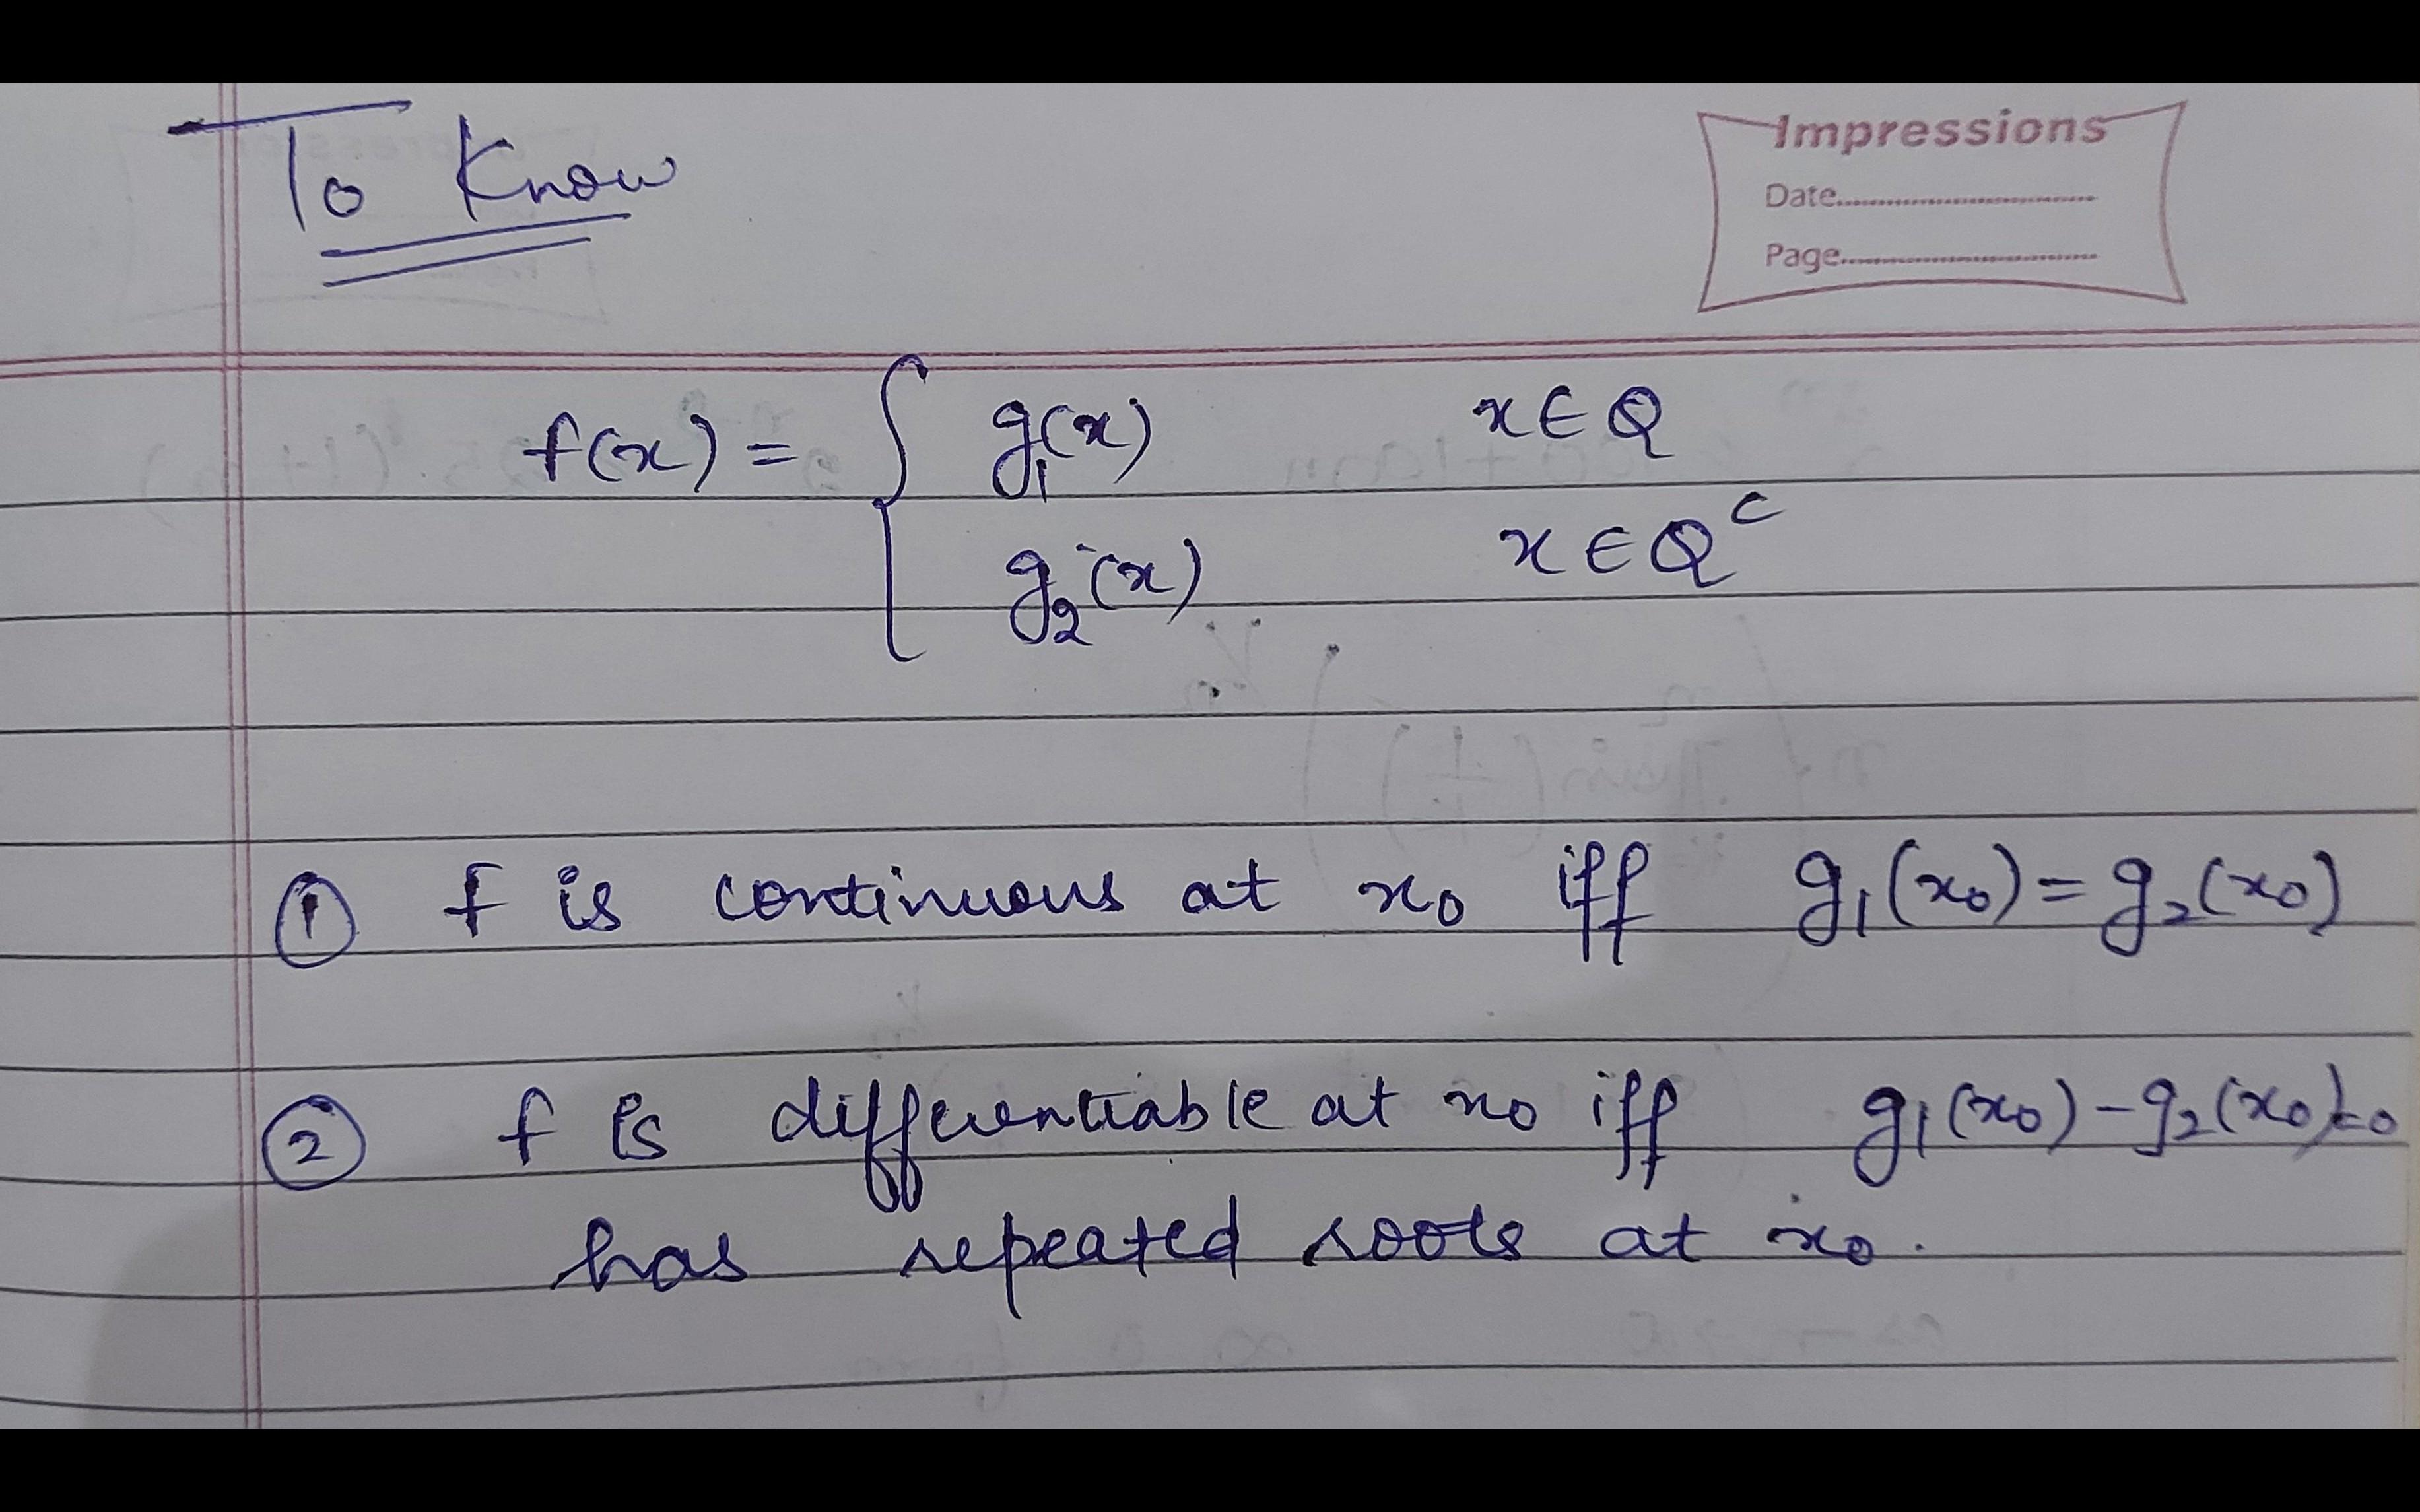 To Know
Impressions
Date..............................
Page..............................
f(x) = { g₁(x) x ∈ Q
g₂(x) x ∈ Qᶜ
① f is continuous at x₀ iff g₁(x₀) = g₂(x₀)
② f is differentiable at x₀ iff g₁(x₀) - g₂(x₀)=0
has repeated roots at x₀.